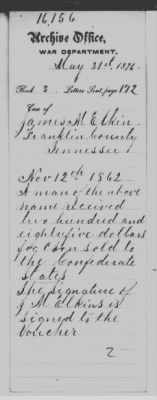 16,156
Archive Office,
WAR DEPARTMENT,
May 31st, 1876.
Book 2. Letters Sent, page 172
Case of
James M Elkin
Franklin County
Tennessee
Nov 12th 1862
A man of the above
name received
two hundred and
eighty five dollars
for Corn sold to
the Confederate
States
The signature of
J M Elkins is
signed to the
Voucher
2